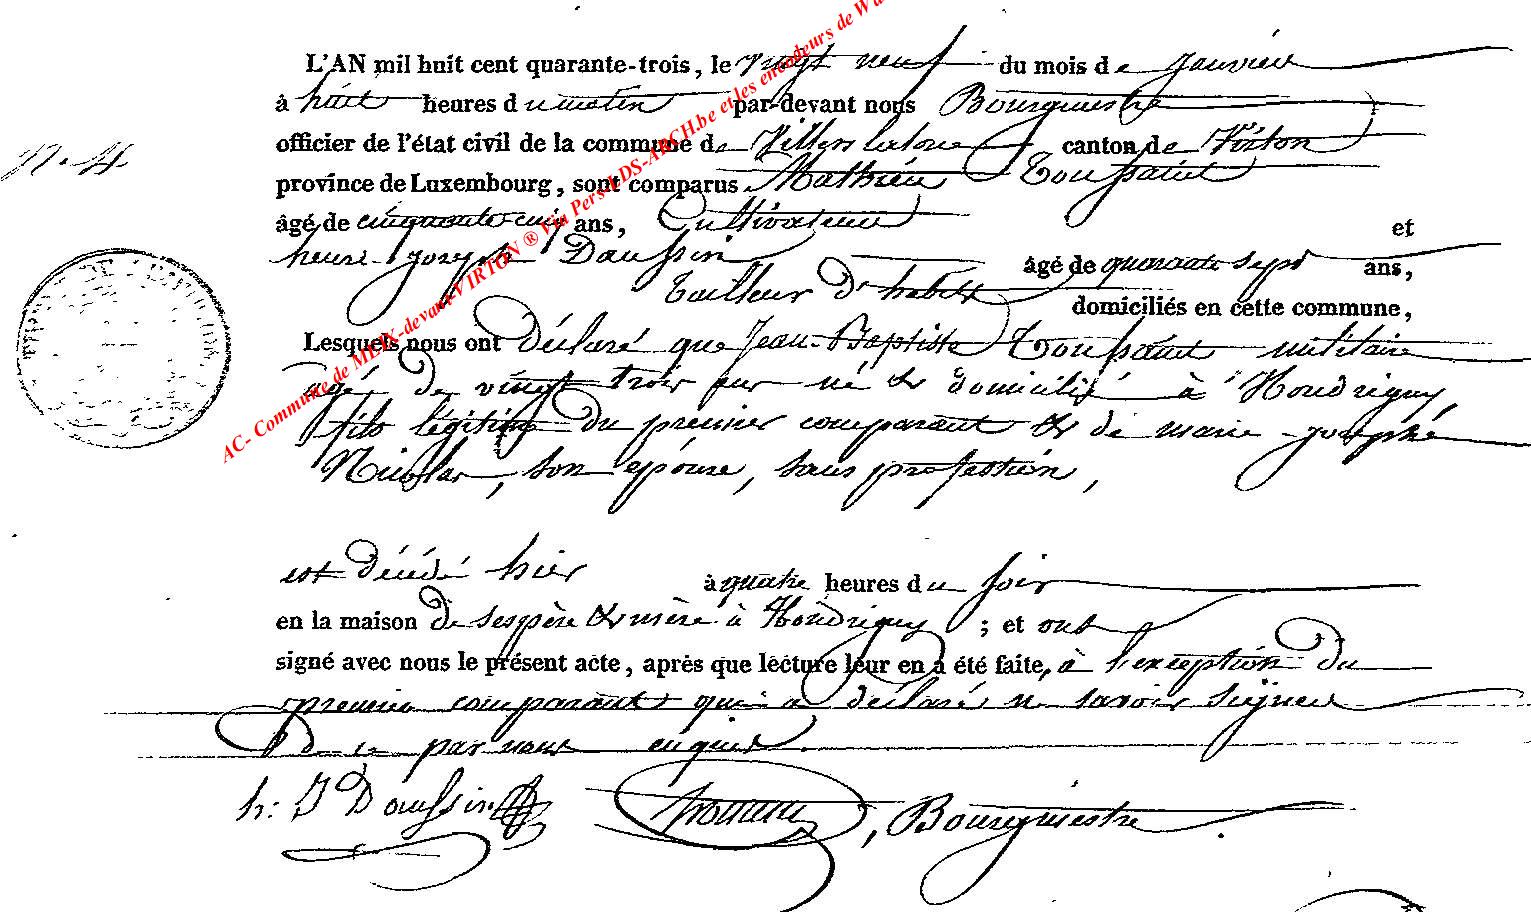 L'AN mil huit cent quarante-trois, le vingt neuf du mois de Janvier
à huit heures du matin par-devant nous Bourgmestre
officier de l'état civil de la commune de Villers laloue canton de Virton
N. 4
province de Luxembourg, sont comparus Mathieu Toussaint
âgé de cinquante-cinq ans, Cultivateur et
henri-joseph Daussin âgé de quarante sept ans,
tailleur d'habits domiciliés en cette commune,
Lesquels nous ont déclaré que Jean-Baptiste Toussaint militaire
agé de vingt trois ans né & domicilié à Houdrigny,
fils légitime du premier comparant & de marie-josephe
Nicolas, son epouse, sans profession,
est décédé hier à quatre heures du soir
en la maison de ses père & mère à Houdrigny ; et ont
signé avec nous le présent acte, après que lecture leur en a été faite, à l'exception du
premier comparant qui a déclaré ne savoir signer
de ce par nous enquis.
h: J Daussin , Bourgmestre.
AC- Commune de MEIX-devant-VIRTON ® Via Pers-LDS-ARCH.be et les encodeurs de